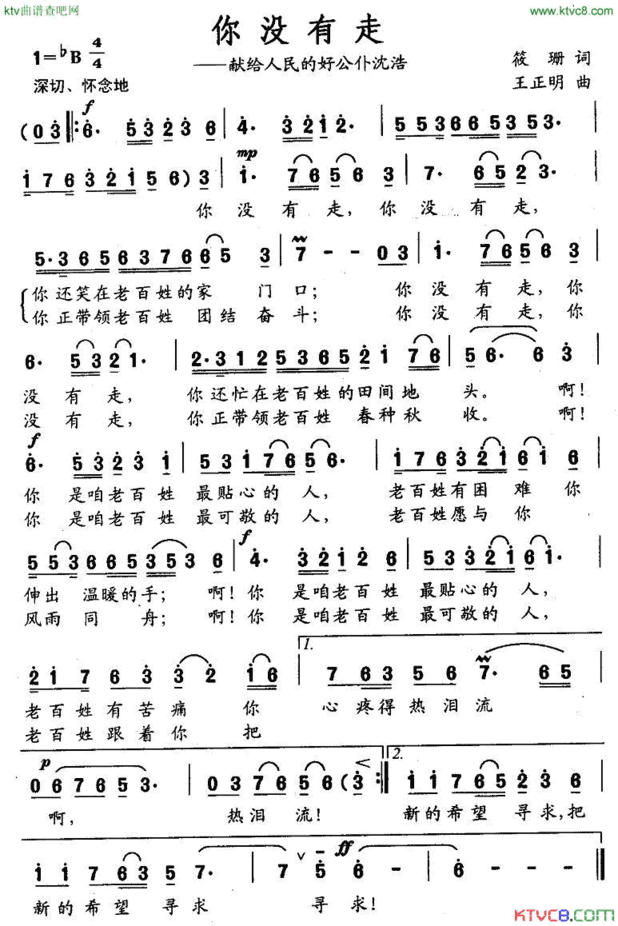 ktv曲谱查吧网
www.ktvc8.com
你没有走
1=♭B 4/4
——献给人民的好公仆沈浩
筱珊 词
深切、怀念地
王正明 曲
f
(0 3 6· 5 3 2 3 6 4· 3 2 1 2· 5 5 3 6 6 5 3 5 3·
mp
1 7 6 3 2 1 5 6) 3 1· 7 6 5 6 7· 5 2 5 3·
你没有走，你没有走，
5·3 6 5 6 3 7 6 6 5 3 7 - - 0 3 1· 7 6 5 6 3
你还笑在老百姓的家门口；你没有走，你
你正带领老百姓团结奋斗；你没有走，你
6· 5 3 2 1· 2·3 1 2 5 3 6 5 5 2 1 7 6 5 6· 3
没有走，你还忙在老百姓的田间地头。啊！
没有走，你正带领老百姓春种秋收。啊！
f
6· 5 3 2 3 1 5 3 1 7 6 5 6· 1 7 6 3 2 1 6 1 6
你是咱老百姓最贴心的人，老百姓有困难你
你是咱老百姓最可敬的人，老百姓愿与你
f
5 5 3 6 6 5 3 5 3 6 4· 3 2 1 2 6 5 5 3 3 2 1 6 1·
伸出温暖的手；啊！你是咱老百姓最贴心的人，
风雨同舟；啊！你是咱老百姓最可敬的人，
1.
2 1 7 6 3 3 2 1 6 7 6 3 5 6 7· 6 5
老百姓有苦痛你心疼得热泪流
老百姓跟着你把
p
2.
0 6 7 6 5 3· 0 3 7 6 5 6 (3 1 1 7 6 5 2 3 6
啊，热泪流！新的希望寻求，把
ff
1 1 7 6 3 5 7· 7 5 6 - 6 -
新的希望寻求寻求！
KTVC8.COM